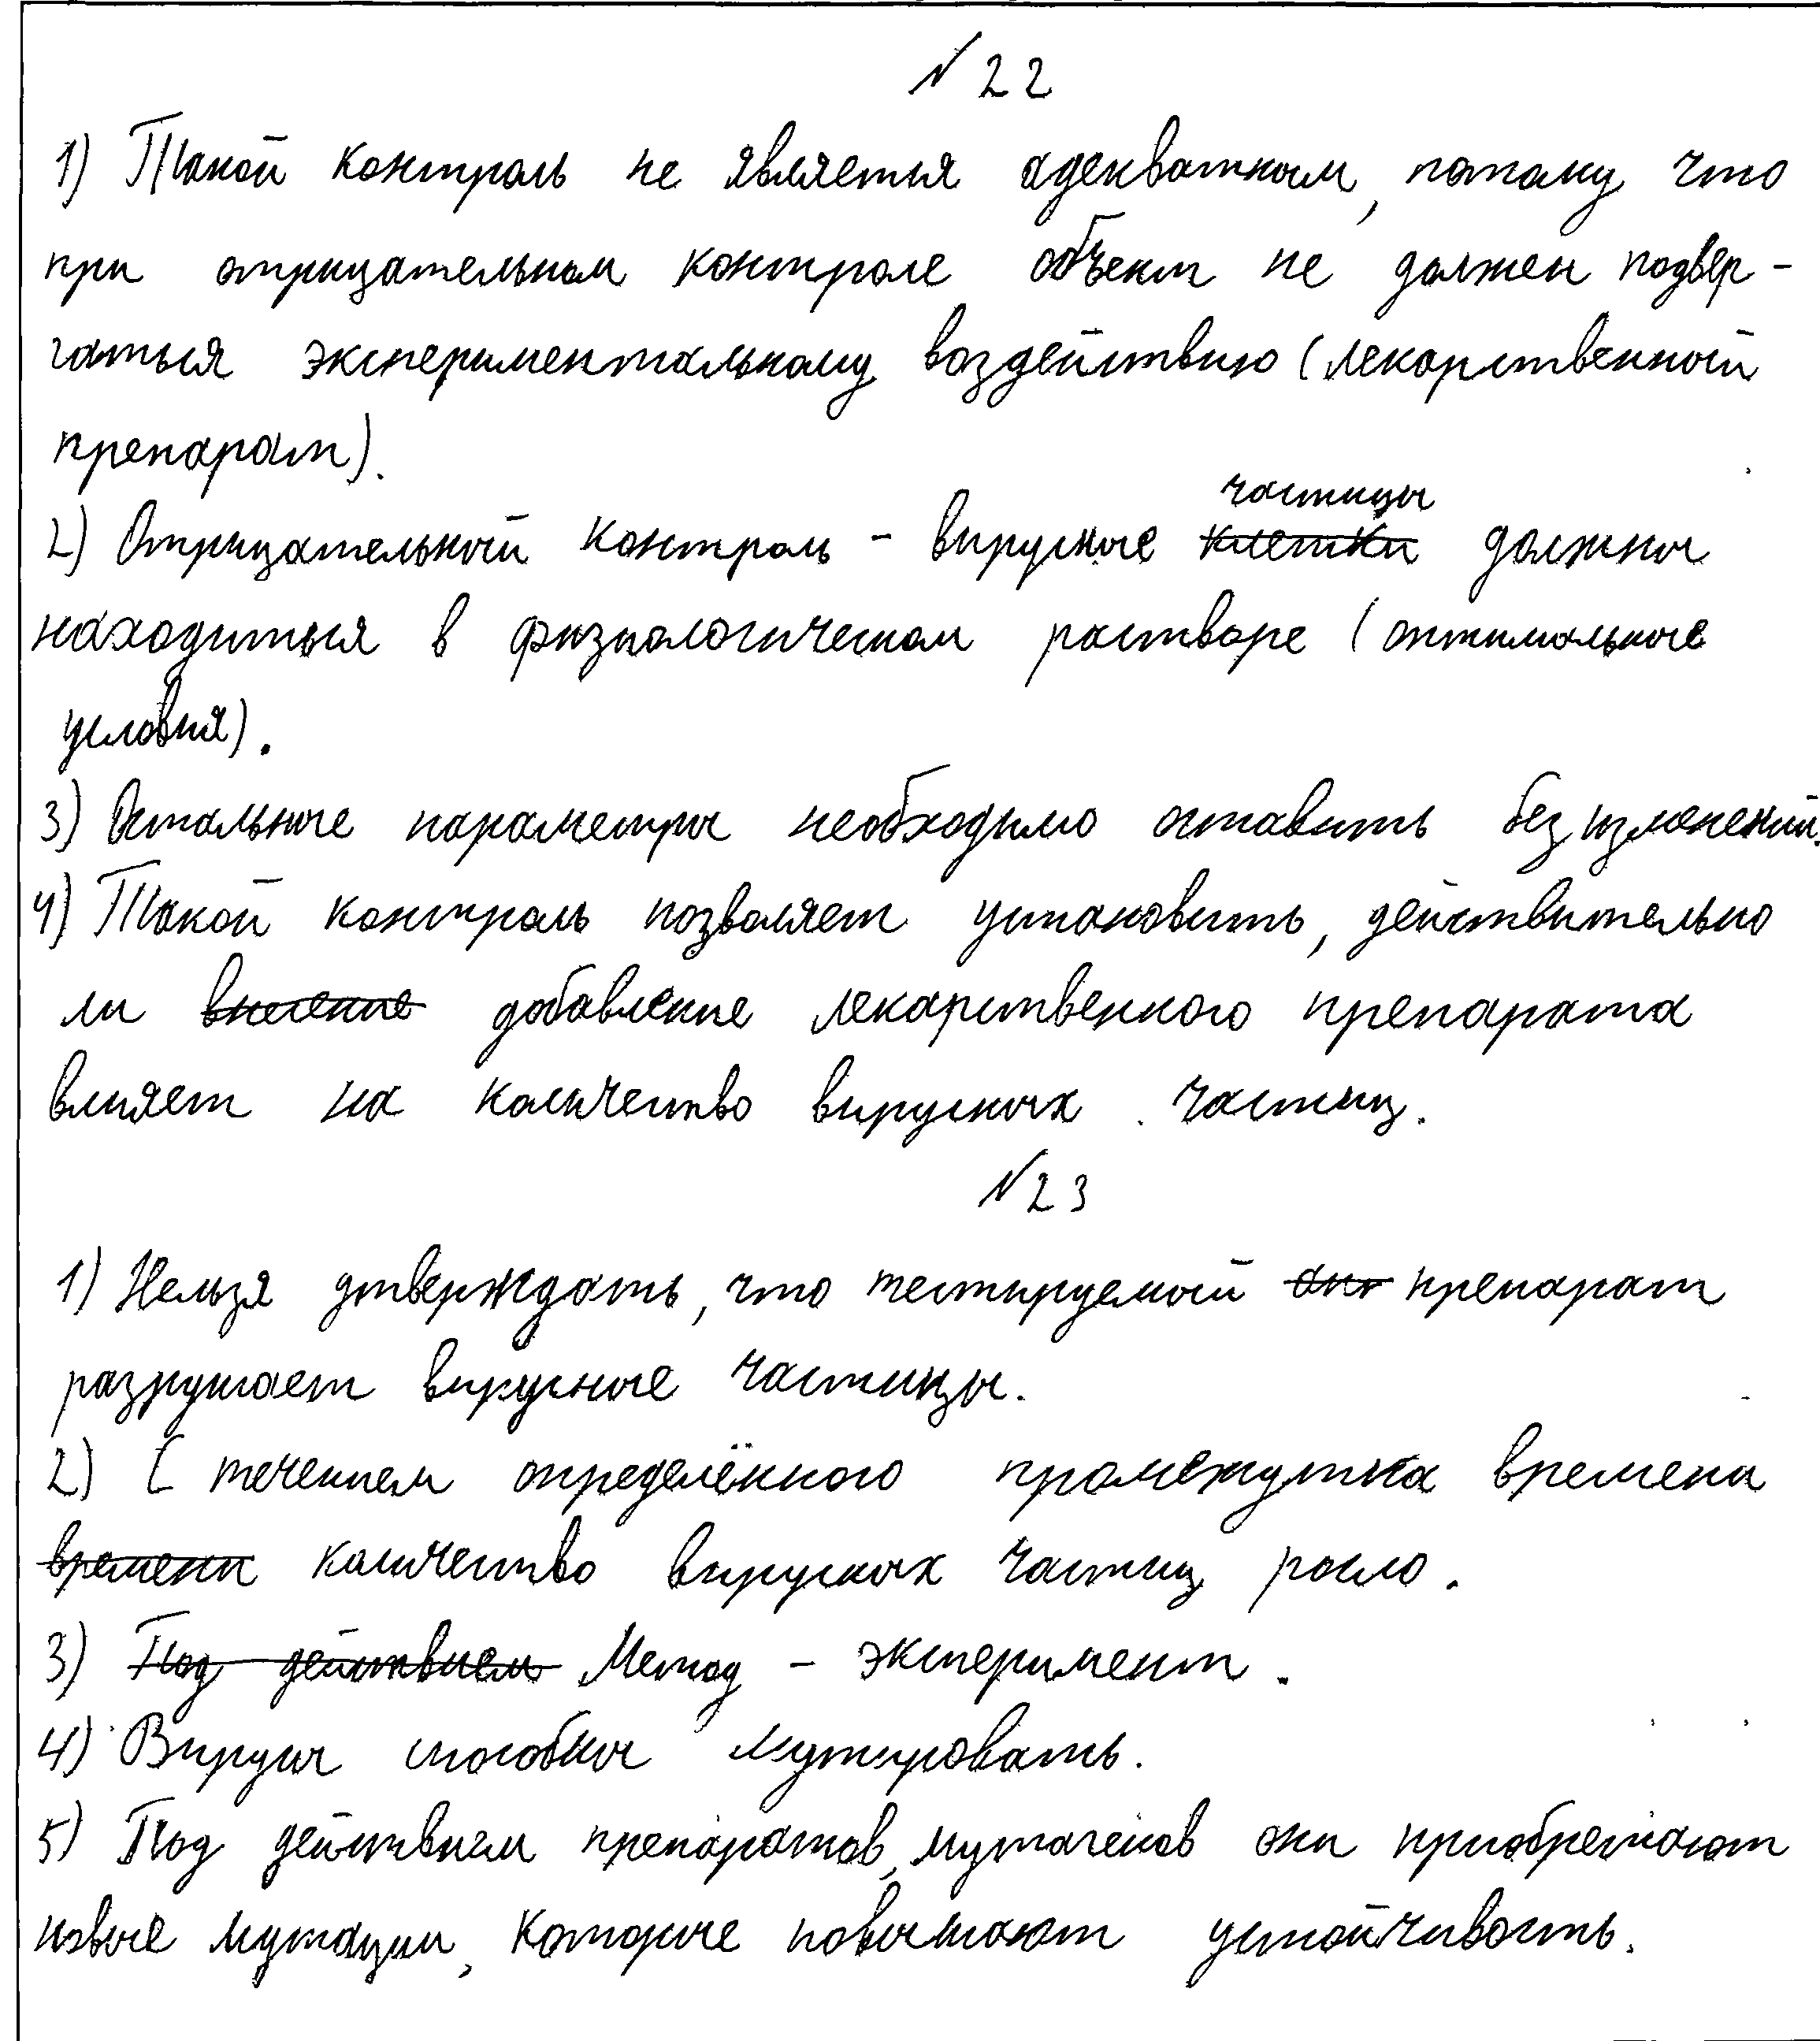 № 22
1) Такой контроль не является адекватным, потому что
при отрицательном контроле объект не должен подвер-
гаться экспериментальному воздействию (лекарственный
препарат).
частицы
2) Отрицательный контроль - вирусные клетки должны
находиться в физиологическом растворе (оптимальные
условия).
3) Остальные параметры необходимо оставить без изменений.
4) Такой контроль позволяет установить, действительно
ли внесение добавление лекарственного препарата
влияет на количество вирусных частиц.
№ 23
1) Нельзя утверждать, что тестируемый препарат
разрушает вирусные частицы.
2) С течением определённого промежутка времени
времени количество вирусных частиц росло.
3) Под действием Метод - эксперимент.
4) Вирусы способны мутировать.
5) Под действием препаратов, мутагенов они приобретают
новые мутации, которые повышают устойчивость.